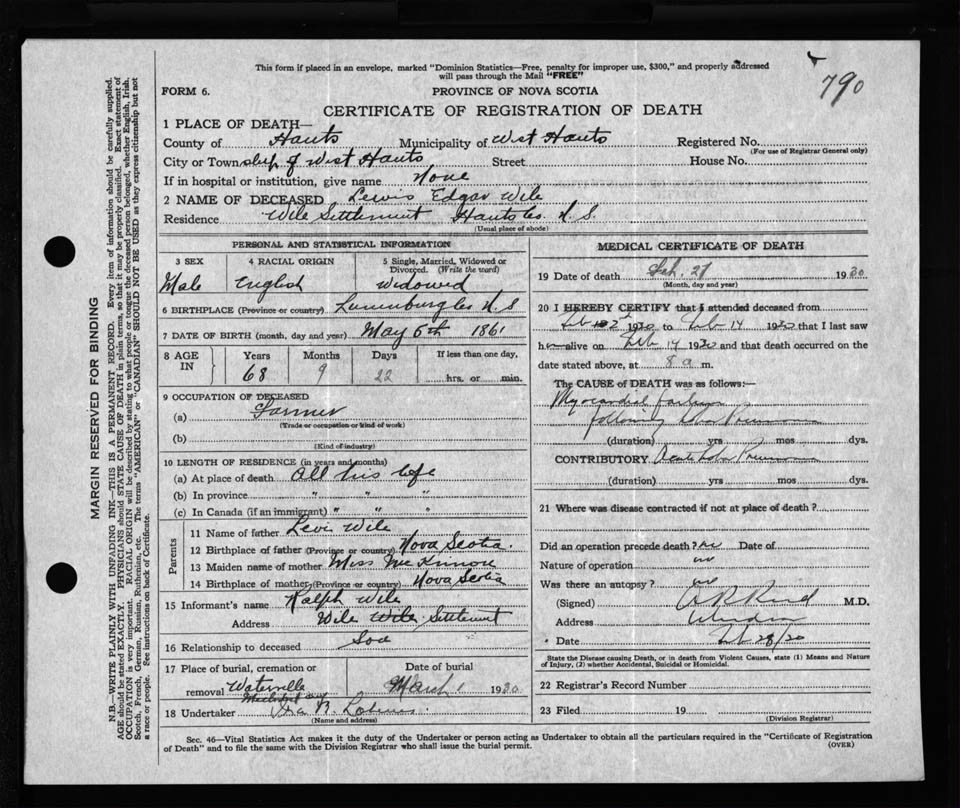 This form if placed in an envelope, marked "Dominion Statistics—Free, penalty for improper use, $300," and properly addressed
will pass through the Mail "FREE"
790
FORM 6.
PROVINCE OF NOVA SCOTIA
CERTIFICATE OF REGISTRATION OF DEATH
1 PLACE OF DEATH—
County of Hants Municipality of West Hants Registered No.
(For use of Registrar General only)
City or Township of West Hants Street House No.
If in hospital or institution, give name None
2 NAME OF DECEASED Lewis Edgar Wile
Residence Wile Settlement Hants Co. N.S.
(Usual place of abode)
PERSONAL AND STATISTICAL INFORMATION
3 SEX 4 RACIAL ORIGIN 5 Single, Married, Widowed or Divorced. (Write the word)
Male English Widowed
6 BIRTHPLACE (Province or country) Lunenburg Co N S
7 DATE OF BIRTH (month, day and year) May 6th 1861
8 AGE IN Years Months Days If less than one day,
68 9 22 hrs. or min.
9 OCCUPATION OF DECEASED
(a) Farmer
(Trade or occupation or kind of work)
(b)
(Kind of industry)
10 LENGTH OF RESIDENCE (in years and months)
(a) At place of death All his life
(b) In province " " "
(c) In Canada (if an immigrant) " " "
Parents
11 Name of father Levi Wile
12 Birthplace of father (Province or country) Nova Scotia.
13 Maiden name of mother Miss McKinnon
14 Birthplace of mother (Province or country) Nova Scotia
15 Informant's name Ralph Wile
Address Wile Settlement
16 Relationship to deceased Son
17 Place of burial, cremation or removal Waterville
Date of burial March 1 1930
18 Undertaker Ira B.
(Name and address)
MEDICAL CERTIFICATE OF DEATH
19 Date of death Feb. 27 1930
(Month, day and year)
20 I HEREBY CERTIFY that I attended deceased from
Feb 2 1930 to Feb 14 1930 that I last saw
h alive on Feb 14 1930 and that death occurred on the
date stated above, at 8 a m.
The CAUSE of DEATH was as follows:
Myocardial failure
following Lobar Pneumonia
(duration) yrs mos dys.
CONTRIBUTORY Acute Lobar Pneumonia
(duration) yrs mos dys.
21 Where was disease contracted if not at place of death?
Did an operation precede death? no Date of
Nature of operation no
Was there an autopsy? no
(Signed) M.D.
Address Windsor
Date Feb 28/30
State the Disease causing Death, or in death from Violent Causes, state (1) Means and Nature
of Injury, (2) whether Accidental, Suicidal or Homicidal.
22 Registrar's Record Number
23 Filed 19
(Division Registrar)
Sec. 46—Vital Statistics Act makes it the duty of the Undertaker or person acting as Undertaker to obtain all the particulars required in the "Certificate of Registration
of Death" and to file the same with the Division Registrar who shall issue the burial permit.
(OVER)
MARGIN RESERVED FOR BINDING
N.B.—WRITE PLAINLY WITH UNFADING INK—THIS IS A PERMANENT RECORD. Every item of information should be carefully supplied.
AGE should be stated EXACTLY. PHYSICIANS should STATE CAUSE OF DEATH in plain terms, so that it may be properly classified. Exact statement of
OCCUPATION is very important. RACIAL ORIGIN will be described by stating to what people or tongue the deceased person belonged, whether English, Irish,
Scotch, French, German, Russian, Ruthenian, etc. The terms "AMERICAN" or "CANADIAN" SHOULD NOT BE USED as they express citizenship but not
a race or people. See instructions on back of Certificate.